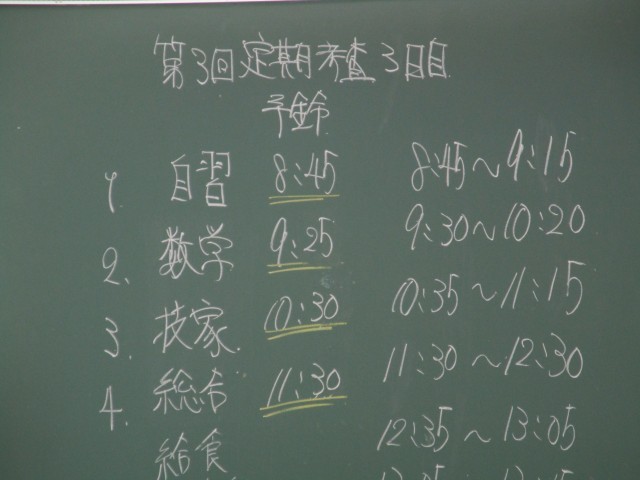 第3回定期考査3日目
予鈴
1. 自習 8:45 8:45〜9:15
2. 数学 9:25 9:30〜10:20
3. 技家 10:30 10:35〜11:15
4. 総合 11:30 11:30〜12:30
給食 12:35〜13:05